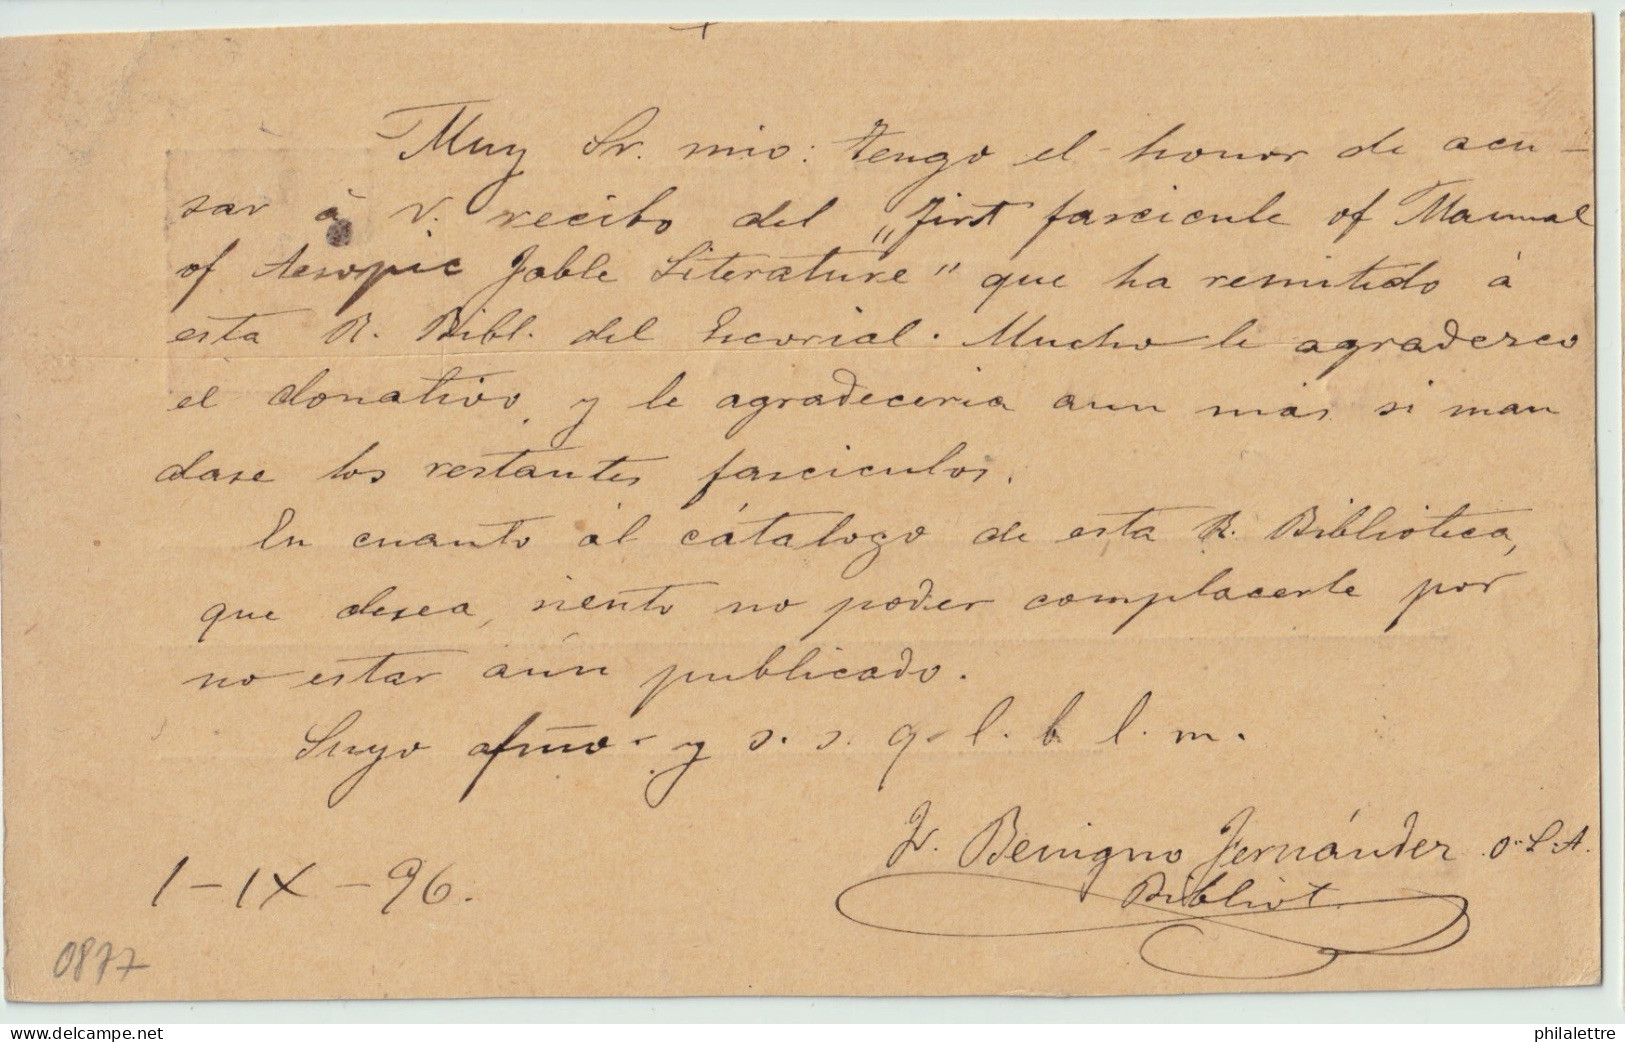 Muy Sr. mio: tengo el honor de acu-
sar á V. recibo del „first fascicule of Manual
of Aesopic Fable Literature" que ha remitido á
esta R. Bibl. del Escorial. Mucho le agradezco
el donativo, y le agradeceria aun más si man
dase los restantes fasciculos.
En cuanto al cátalogo de esta R. Biblioteca,
que desea, siento no poder complacerle por
no estar aún publicado.
Suyo afmo. y s. s. q. l. b. l. m.
Fr. Benigno Fernández O.S.A.
Bibliot.
1-IX-96.
0877
www.delcampe.net
philalettre